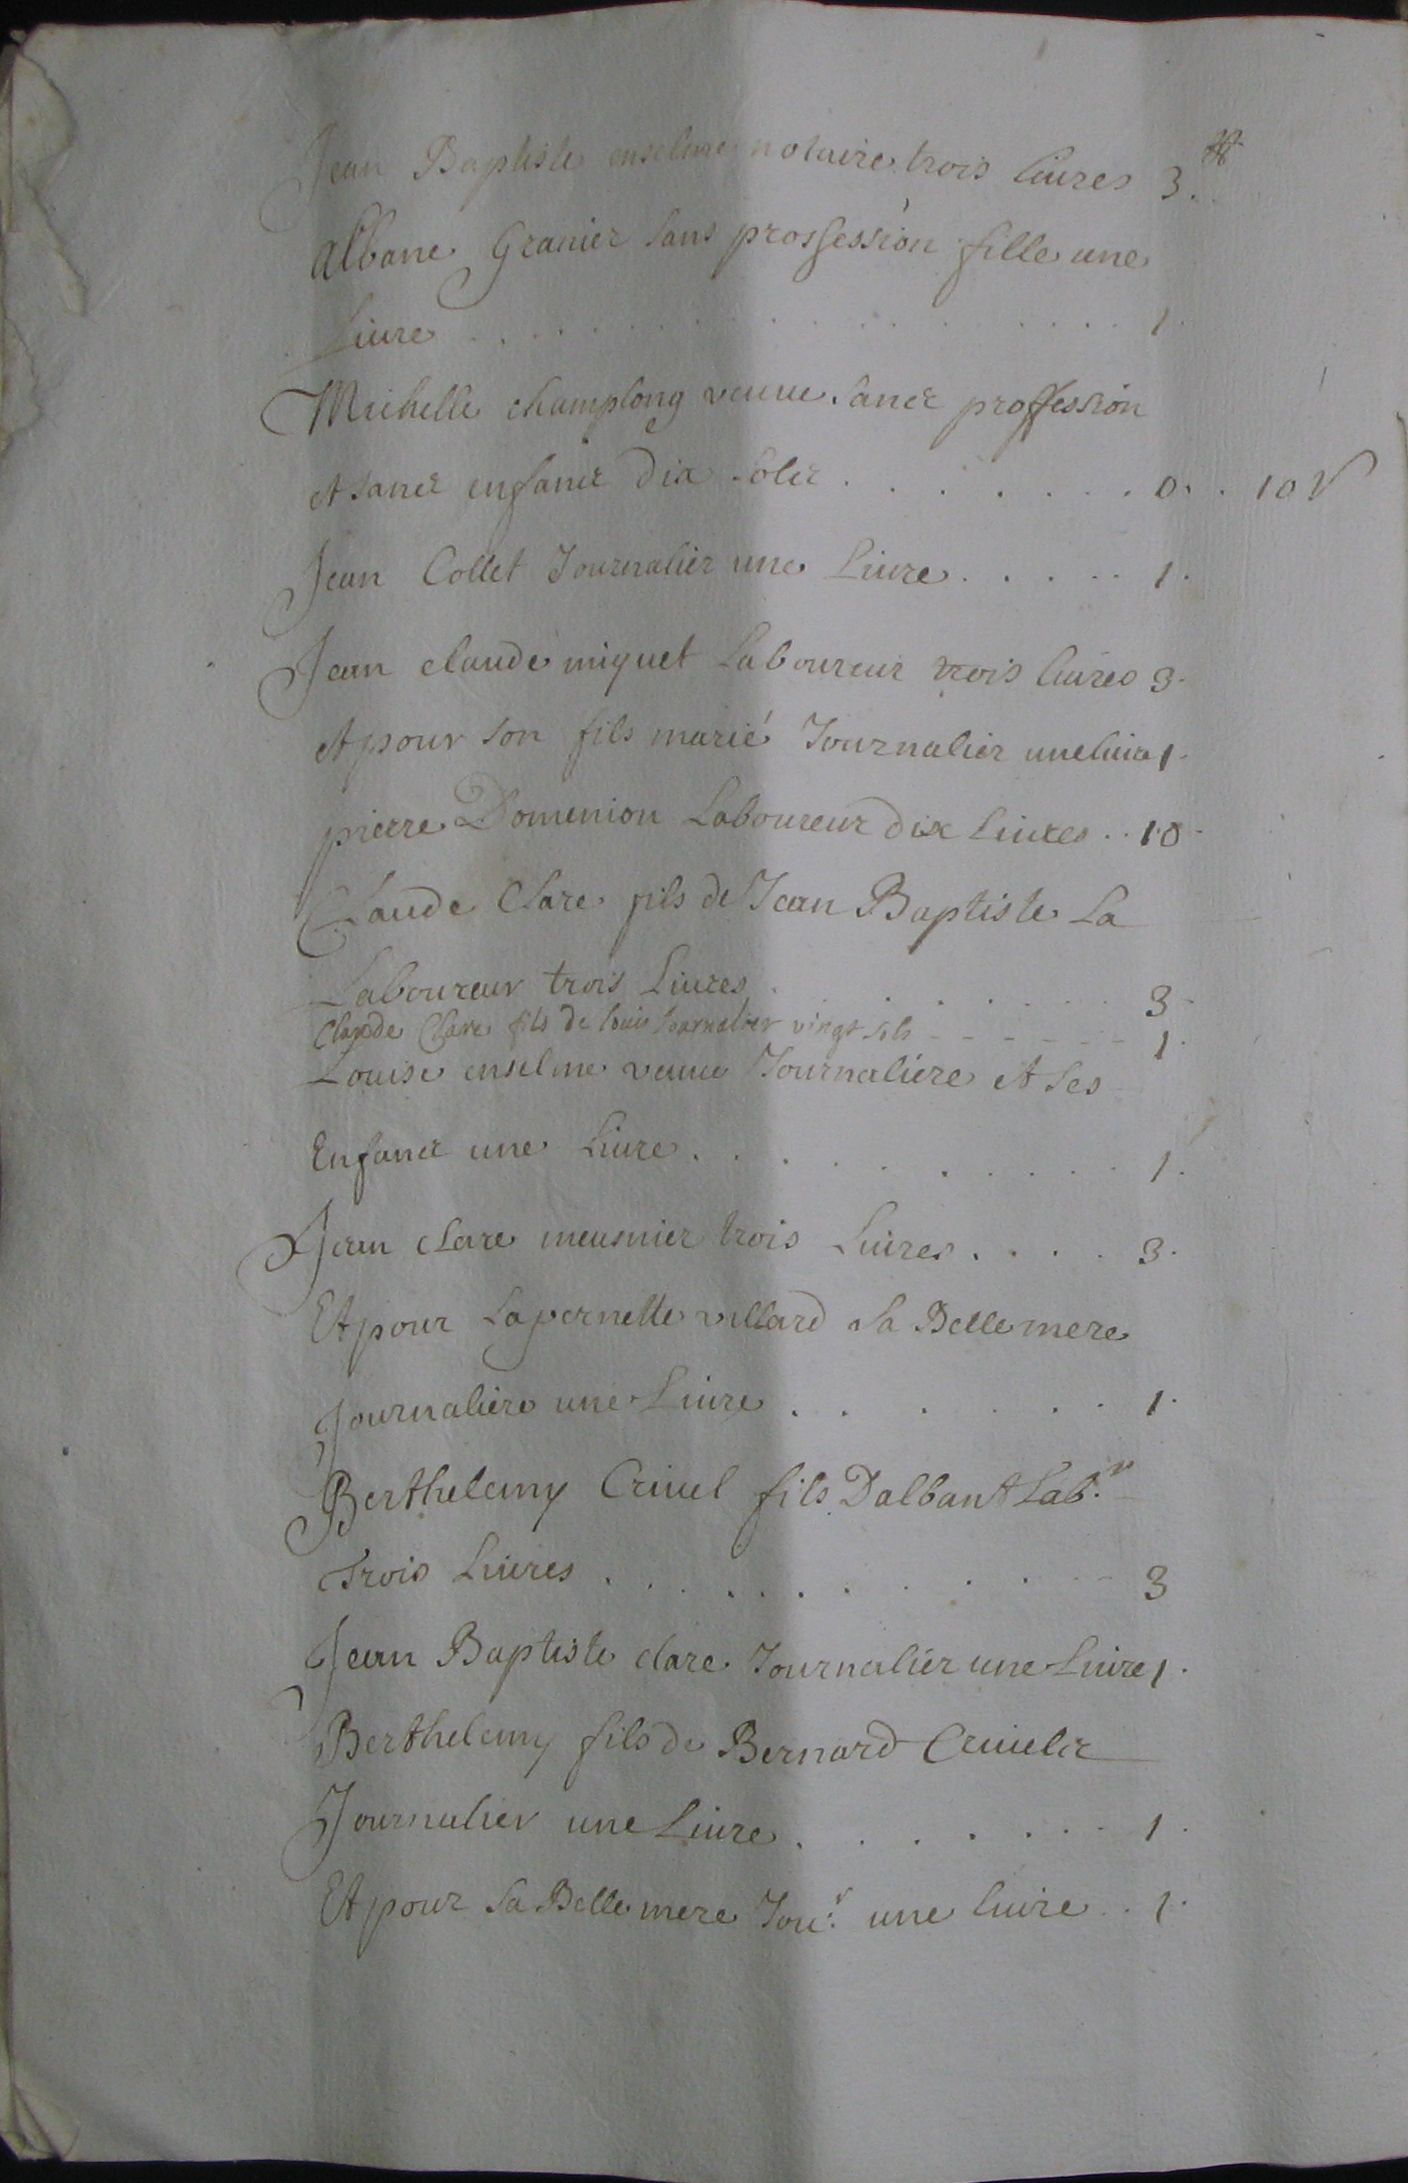 Jean Baptiste enselme notaire trois liures 3. ₶
Albane Granier sans proffession fille une
Liure . . . . . . . . . . . . 1.
Michelle champlong veuue sanct proffession
et sanct enfanct dix solct . . . . . . . . 0. . 10 s
Jean Collet Journalier une Liure . . . . . 1.
Jean claude miquet Laboureur trois liures 3.
et pour son fils marié Journalier une liure 1.
pierre Domenion Laboureur dix Liures . . 10.
Claude Clare fils de Jean Baptiste La
Laboureur trois Liures . . . . . . 3.
Claude Clare fils de louis Journalier vingt sols - - - - - - 1.
Louise enselme veuue Journaliére et ses
Enfanct une Liure . . . . . . . . . 1.
Jean clare meusnier trois Liures . . . . 3.
Et pour la pernette villard sa Belle mere
Journaliere une Liure . . . . . . . 1.
Berthelemy Criuel fils D'alban Lab.r
Trois Liures . . . . . . . . . . 3
Jean Baptiste clare Journaliér une Liure 1.
Berthelemy fils de Bernard Criuelct
Journalier une Liure . . . . . . . 1.
Et pour sa Belle mere Jou.r une liure . . 1.